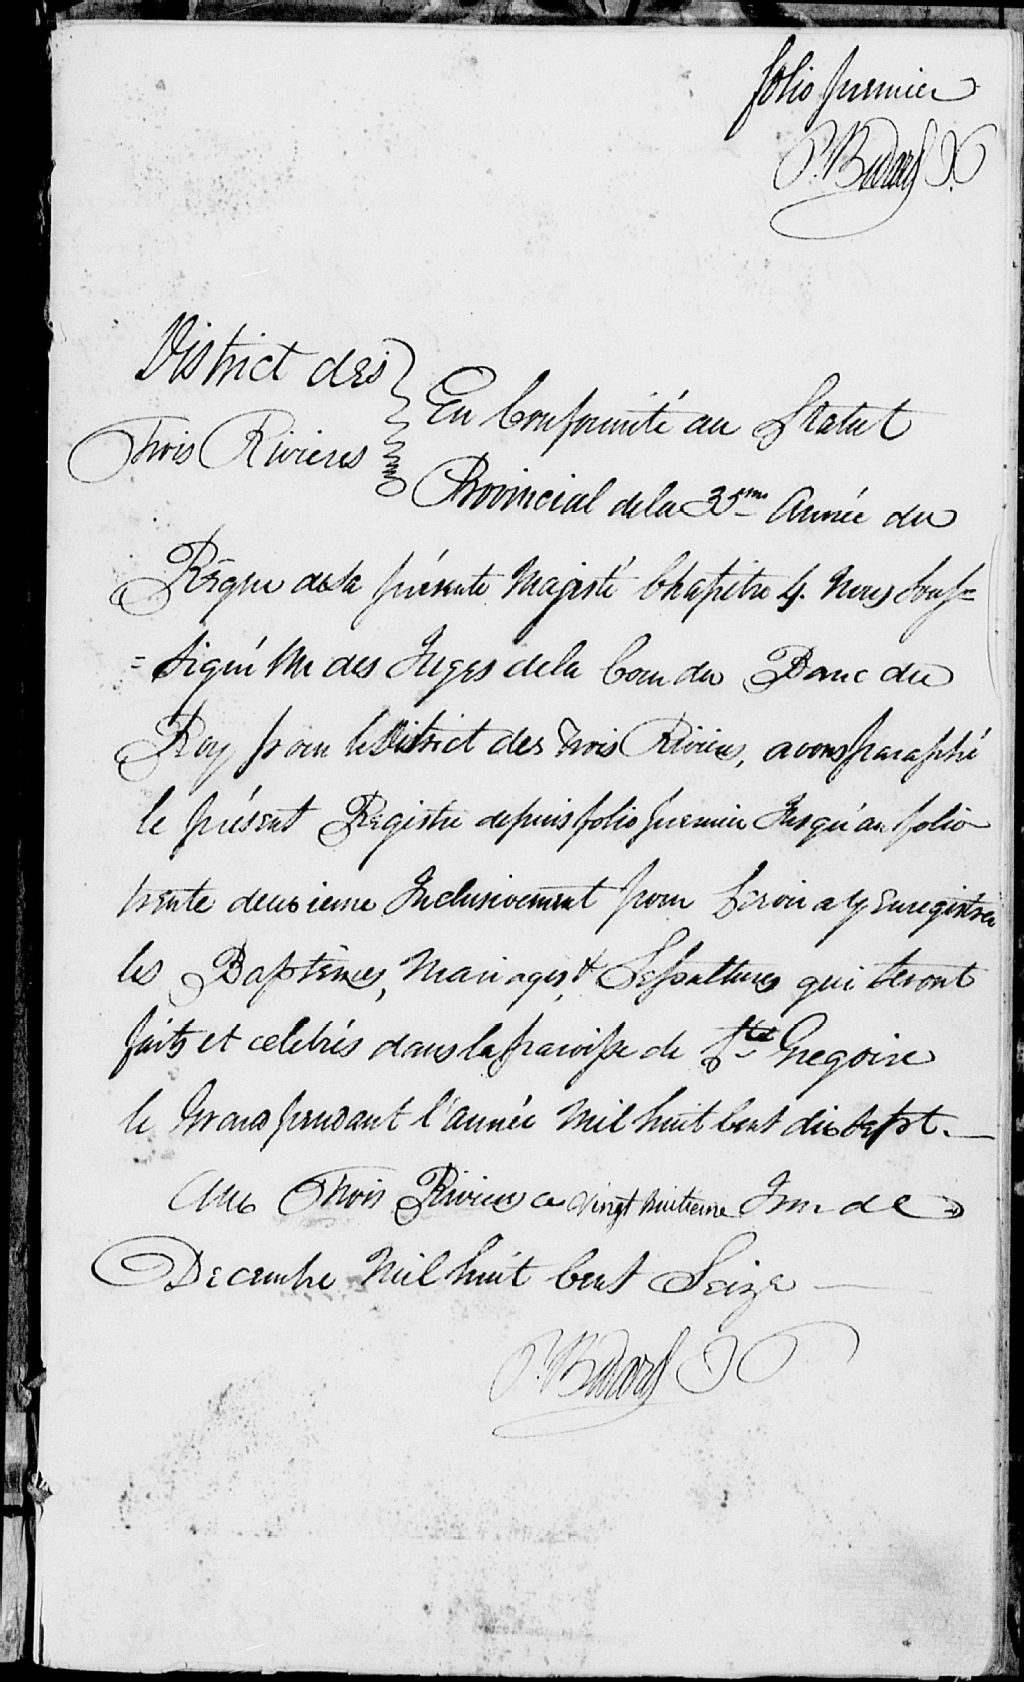 folio premier
P. Bedard J.
District des
Trois Rivieres
En Conformité au Statut
Provincial de la 35me Année du
Règne de sa présente Majesté Chapitre 4. Nous Sous=
=signé Un des Juges de la Cour du Banc du
Roy pour le District des Trois Rivieres, avons paraphé
le présent Registre depuis folio premier Jusqu'au folio
trente deuxieme Inclusivement pour Servir a y Enregistrer
les Baptêmes, Mariages, & Sepultures qui seront
faits et celebrés dans la paroisse de St Gregoire
le Grand pendant l'année Mil huit Cent dix sept.
Aux Trois Rivieres ce vingt huitieme Jour de
Decembre Mil huit Cent Seize
P. Bedard J.